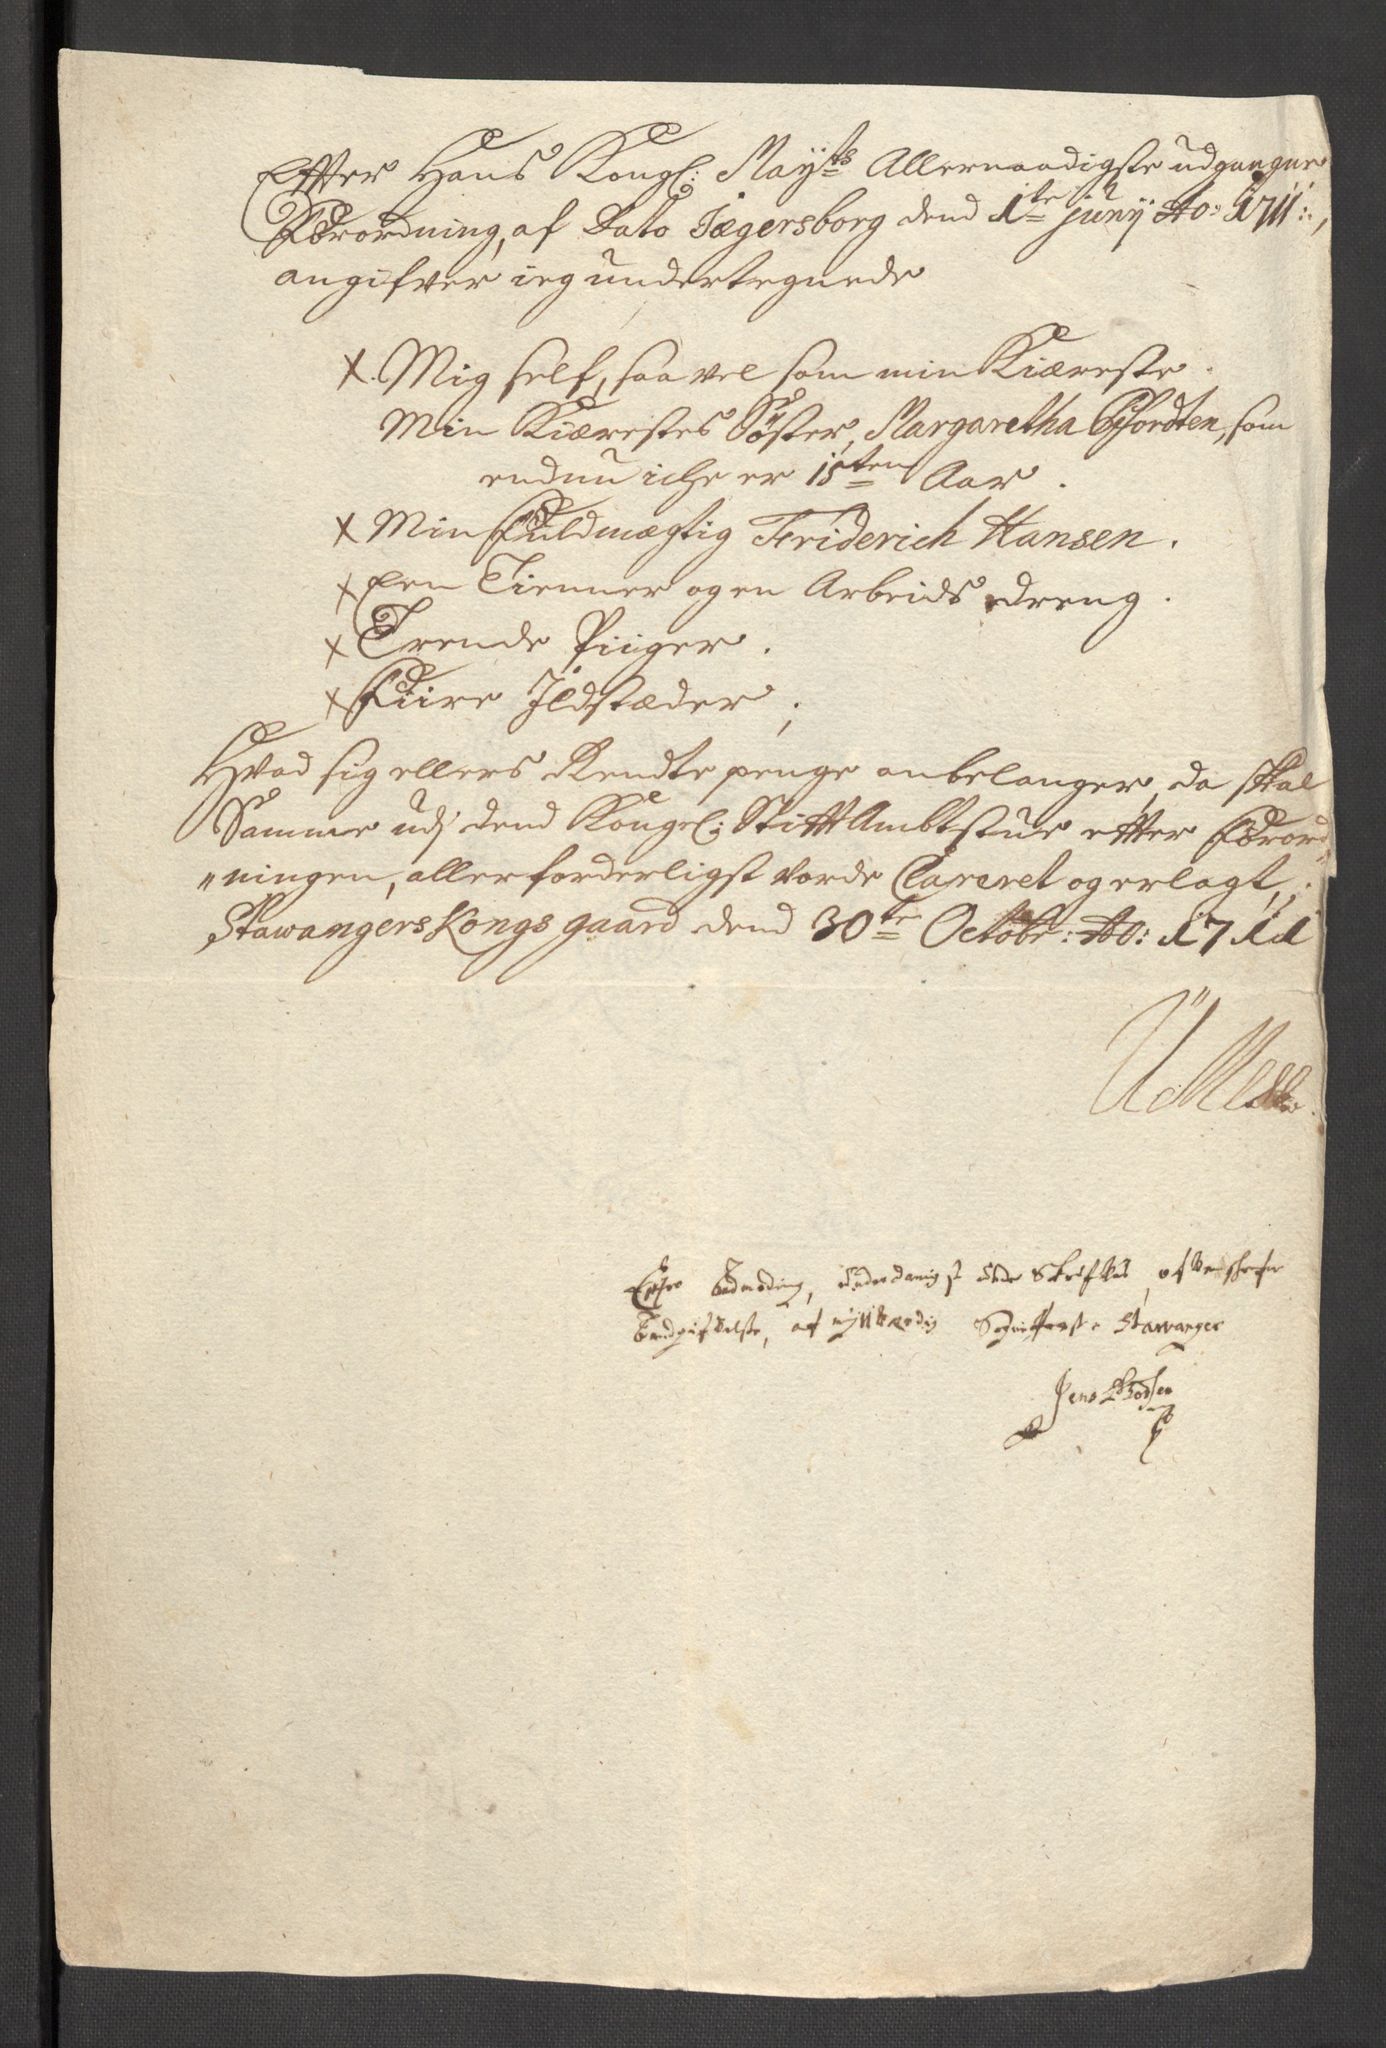 Effter Hans Kongl: Mayts Allernaadigste udgangne
Forordning, af Dato Jægersborg dend 1te juny Ao: 1711:,
angifver ieg undertegnede
X. Mig self, saa vel som min Kiæreste.
Min Kiærestes Söster, Margaretha Pfordten, som
endnu iche er 15ten Aar.
X Min Fuldmægtig Friderich Hansen.
X Een Tienner og en Arbeids dreng.
X Trende Piiger.
X Fiire Ildstæder,
Hvad sig ellers Rendte penge anbelanger, da skal
Samme udj dend Kongel: StifftAmbtstue effter Forord
"ningen, allerforderligst vorde Clareret og erlagt,
Stawangers Kongsgaard dend 30te Octobr: Ao: 1711
underdanigst
af Stawanger
Jens